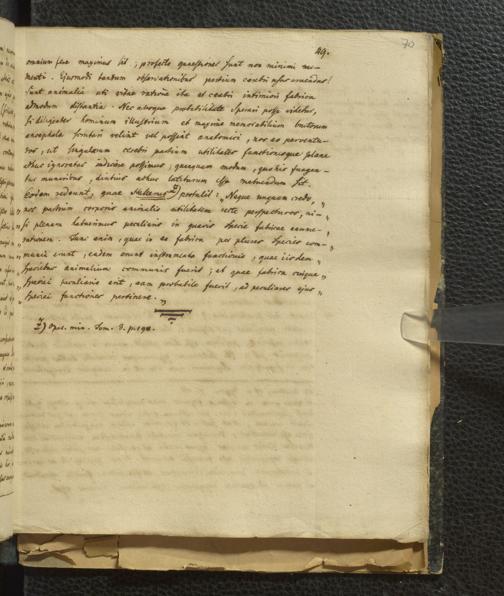 70
49.
omnium fere maximus sit; profecto quaestiones sunt non minimi mo-
menti. Ejusmodi tandem observationibus partium cerebri usus
sunt animalia uti vitae ratione ita et cerebri intimiori fabrica
admodum distantia. Nec absque probabilitate sperari posse videtur,
si diligenter hominum illustrium et maxime memorabilium brutorum
encephala scrutari velint vel possint anatomici, nos eo perventu-
ros, ut singularum cerebri partium utilitates functionesque plane
adhuc ignoratas indicare possimus; quamquam modum, quo his fungan-
tur muneribus, diutius adhuc latiturum esse metuendum sit.
Eodem redeunt, quae Hallerus Z) protulit: „Neque unquam credo,
nos partium corporis animalis utilitatem recte perspecturos, ni-„
si plenam habuerimus peculiaris in quavis specie fabricae enume-„
rationem. Tunc enim, quae in ea fabrica per plures species com-„
munia erunt, eadem erunt instrumenta functionis, quae iisdem„
speciebus animalium communis fuerit; et quae fabrica cuique„
speciei peculiaris erit, eam probabile fuerit, ad peculiares ejus„
speciei functiones pertinere.„
Z) Oper. min. Tom. 3. p. 198.